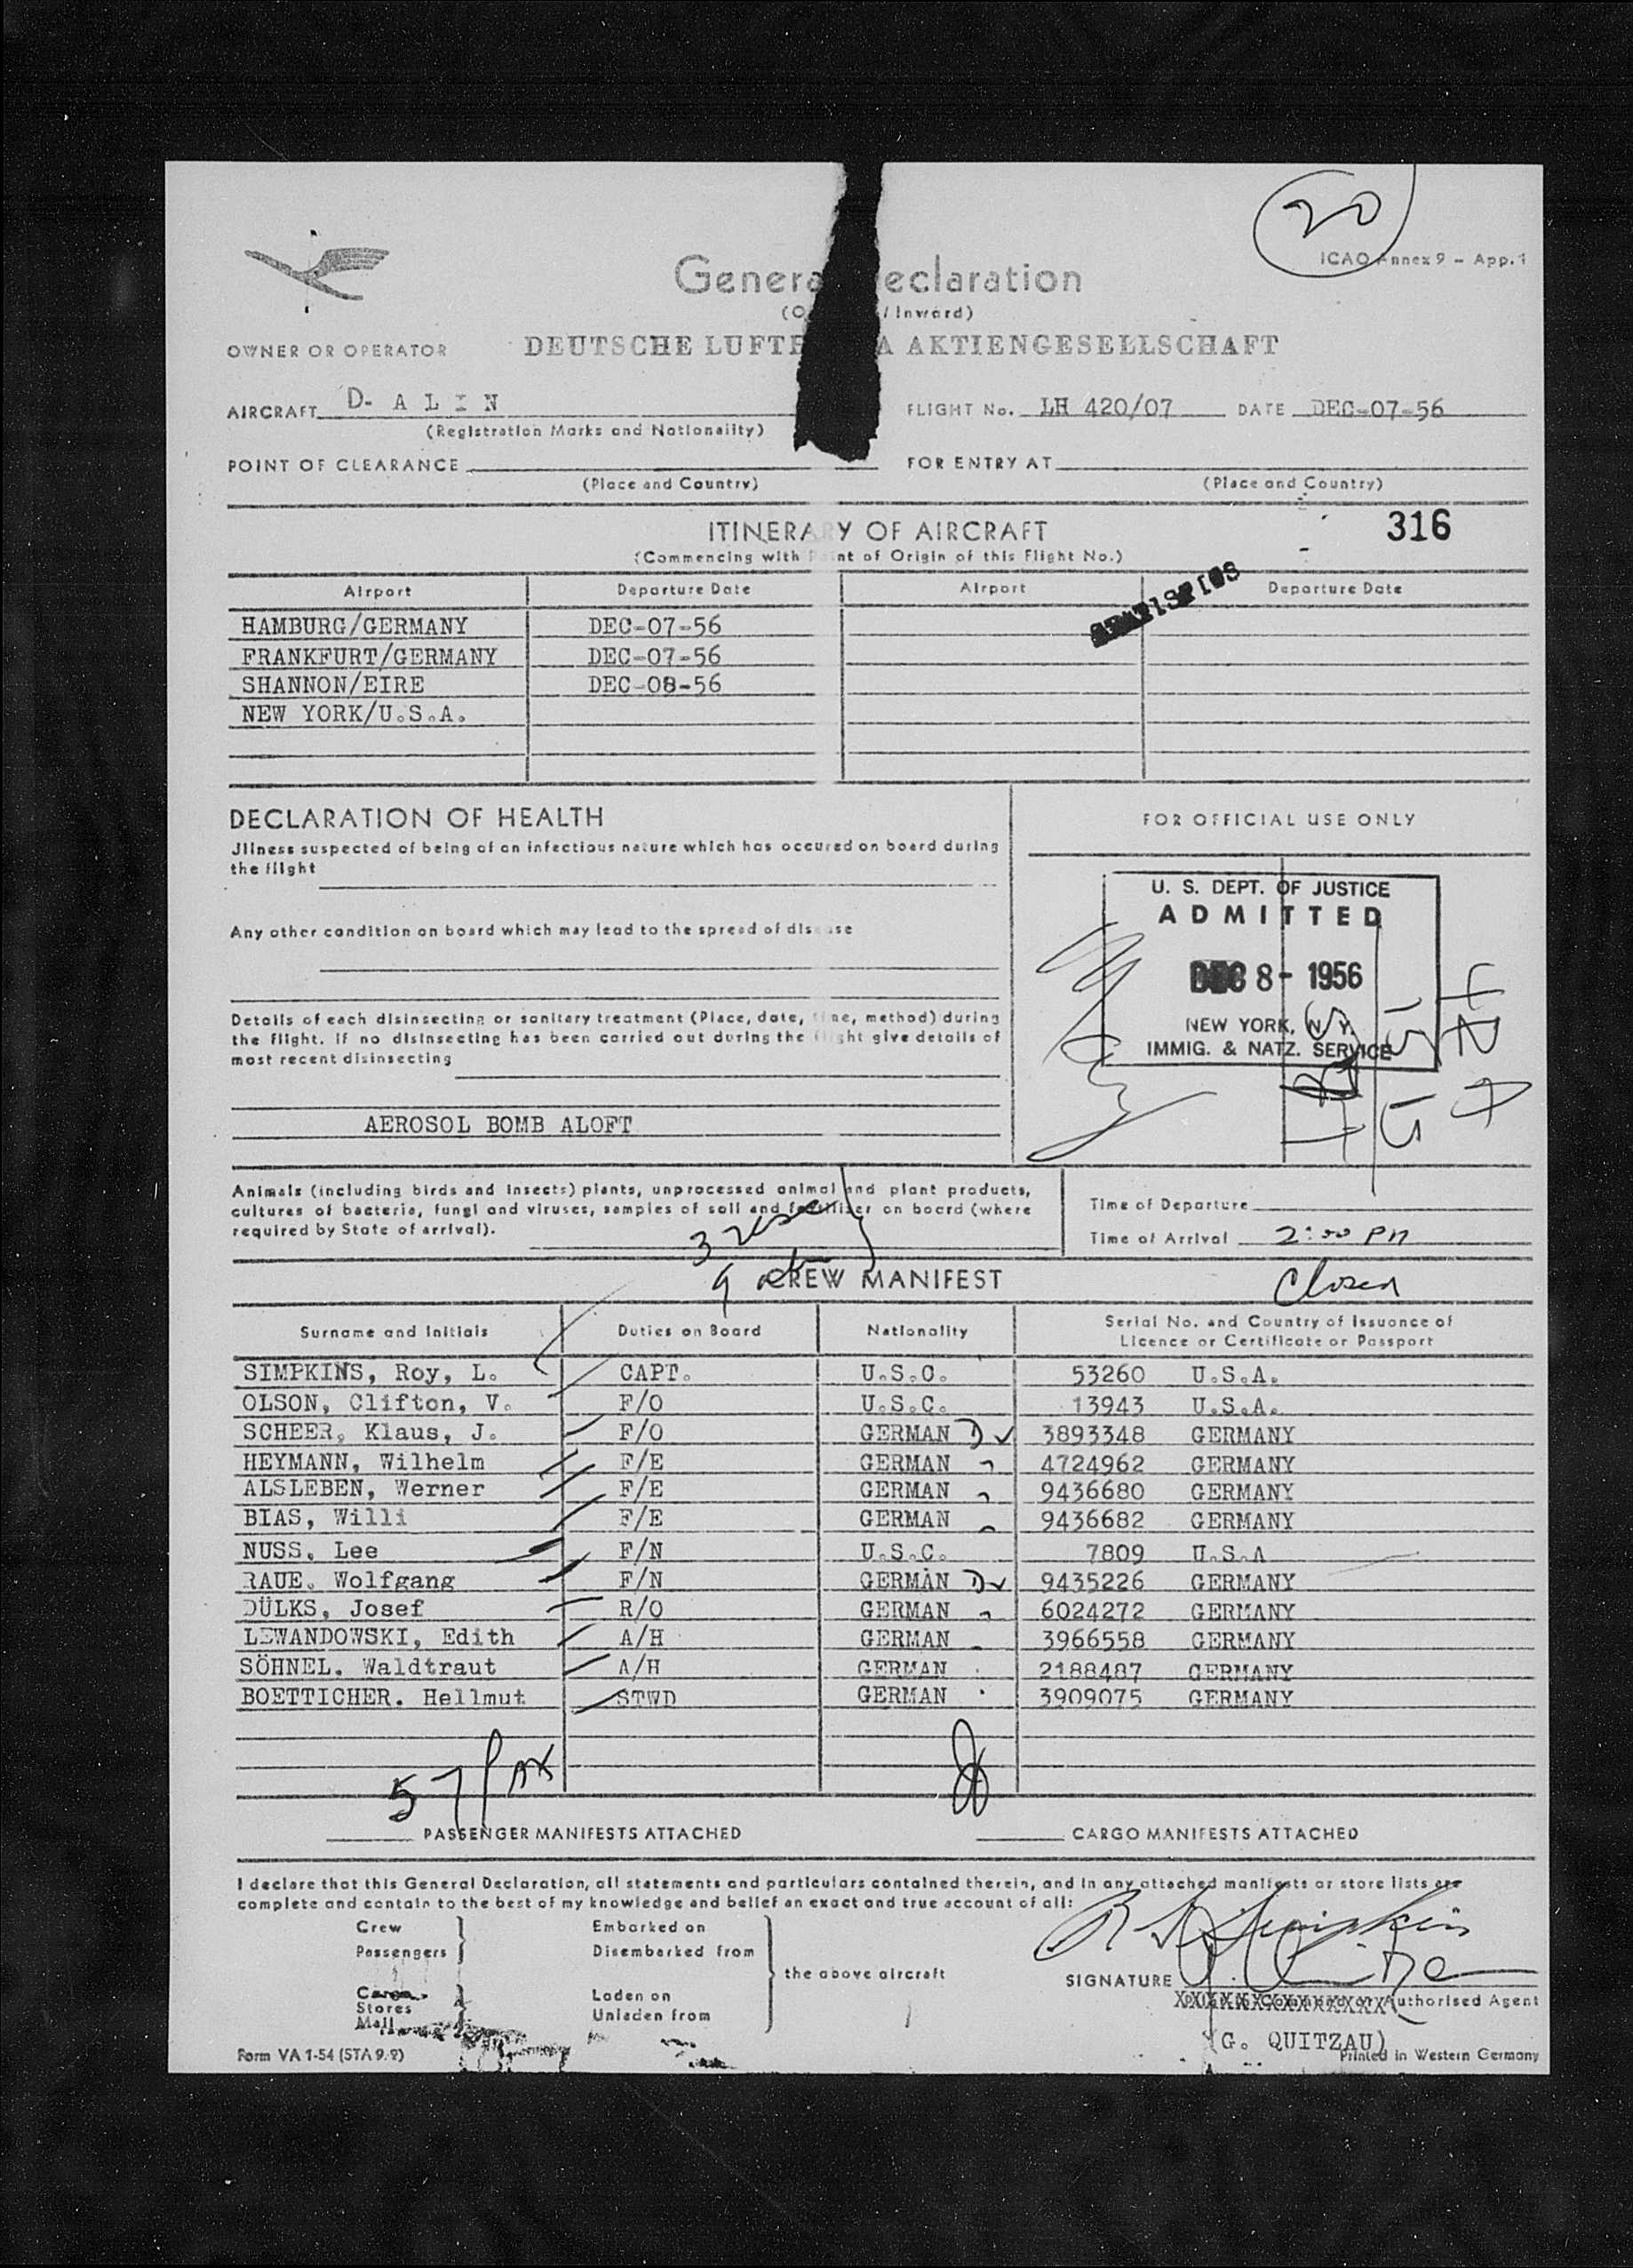 20
ICAO Annex 9 – App. 1
General Declaration
(O / Inward)
OWNER OR OPERATOR DEUTSCHE LUFTH A AKTIENGESELLSCHAFT
AIRCRAFT D- A L I N FLIGHT No. LH 420/07 DATE DEC-07-56
(Registration Marks and Nationality)
POINT OF CLEARANCE FOR ENTRY AT
(Place and Country) (Place and Country)
ITINERARY OF AIRCRAFT 316
(Commencing with Point of Origin of this Flight No.)
Airport Departure Date Airport Departure Date
HAMBURG/GERMANY DEC-07-56
FRANKFURT/GERMANY DEC-07-56
SHANNON/EIRE DEC-08-56
NEW YORK/U.S.A.
DECLARATION OF HEALTH
Jllness suspected of being of an infectious nature which has occured on board during
the flight
Any other condition on board which may lead to the spread of disease
Details of each disinsecting or sanitary treatment (Place, date, time, method) during
the flight. If no disinsecting has been carried out during the flight give details of
most recent disinsecting
AEROSOL BOMB ALOFT
FOR OFFICIAL USE ONLY
U. S. DEPT. OF JUSTICE
ADMITTED
DEC 8 - 1956
NEW YORK, N.Y.
IMMIG. & NATZ. SERVICE
Animals (including birds and insects) plants, unprocessed animal and plant products,
cultures of bacteria, fungi and viruses, samples of soil and fertilizer on board (where
required by State of arrival).
Time of Departure
Time of Arrival 2:00 PM
3 usc
9
CREW MANIFEST Closed
Surname and Initials Duties on Board Nationality Serial No. and Country of Issuance of
Licence or Certificate or Passport
SIMPKINS, Roy, L. CAPT. U.S.C. 53260 U.S.A.
OLSON, Clifton, V. F/O U.S.C. 13943 U.S.A.
SCHEER, Klaus, J. F/O GERMAN D ✓ 3893348 GERMANY
HEYMANN, Wilhelm F/E GERMAN 4724962 GERMANY
ALSLEBEN, Werner F/E GERMAN 9436680 GERMANY
BIAS, Willi F/E GERMAN 9436682 GERMANY
NUSS, Lee F/N U.S.C. 7809 U.S.A
RAUE, Wolfgang F/N GERMAN D ✓ 9435226 GERMANY
DÜLKS, Josef R/O GERMAN 6024272 GERMANY
LEWANDOWSKI, Edith A/H GERMAN 3966558 GERMANY
SÖHNEL. Waldtraut A/H GERMAN 2188487 GERMANY
BOETTICHER. Hellmut STWD GERMAN 3909075 GERMANY
57 PAX
PASSENGER MANIFESTS ATTACHED CARGO MANIFESTS ATTACHED
I declare that this General Declaration, all statements and particulars contained therein, and in any attached manifests or store lists are
complete and contain to the best of my knowledge and belief an exact and true account of all:
Crew Embarked on
Passengers Disembarked from
the above aircraft
Cargo Laden on
Stores Unladen from
Mail
R L Simpkins
SIGNATURE
Authorised Agent
(G. QUITZAU)
Form VA 1-54 (STA 9.2) Printed in Western Germany